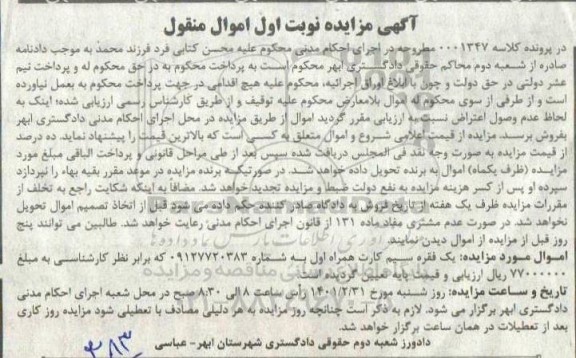 آگهی مزایده نوبت اول اموال منقول
در پرونده کلاسه ۰۰۰۱۳۴۷ مطروحه در اجرای احکام مدنی محکوم علیه محسن کتابی فرد فرزند محمد به موجب دادنامه
صادره از شعبه دوم محاکم حقوقی دادگستری ابهر محکوم است به پرداخت محکوم به در حق محکوم له و پرداخت نیم
عشر دولتی در حق دولت و چون با ابلاغ اوراق اجرائیه، محکوم علیه هیچ اقدامی در جهت پرداخت محکوم به بعمل نیاورده
است و از طرفی از سوی محکوم له اموال بلامعارض محکوم علیه توقیف و از طریق کارشناس رسمی ارزیابی شده؛ اینک به
لحاظ عدم وصول اعتراض نسبت به ارزیابی مقرر گردید اموال از طریق مزایده در محل اجرای احکام مدنی دادگستری ابهر
بفروش برسد. مزایده از قیمت اعلامی شروع و اموال متعلق به کسی است که بالاترین قیمت را پیشنهاد نماید. ده درصد
از قیمت مزایده به صورت وجه نقد فی المجلس دریافت شده سپس بعد از طی مراحل قانونی و پرداخت الباقی مبلغ مورد
مزایده (ظرف یکماه) اموال به برنده تحویل داده خواهد شد. در صورتیکه برنده مزایده در موعد مقرر بقیه بهاء را نپردازد
سپرده او پس از کسر هزینه مزایده به نفع دولت ضبط و مزایده تجدید خواهد شد. مضافاً به اینکه شکایت راجع به تخلف از
مقررات مزایده ظرف یک هفته از تاریخ فروش به دادگاه صادر کننده حکم داده می شود قبل از اتخاذ تصمیم اموال تحویل
نخواهد شد. در صورت عدم مشتری مفاد ماده ۱۳۱ از قانون اجرای احکام مدنی رعایت خواهد شد. طالبین می توانند پنج
روز قبل از مزایده از اموال دیدن نمایند.
اموال مورد مزایده: یک فقره سیم کارت همراه اول به شماره ۰۹۱۲۷۷۲۰۳۸۳ که برابر نظر کارشناسی به مبلغ
۷۷۰۰۰۰۰۰ ریال ارزیابی و قیمت پایه اعلام گردیده است.
تاریخ و ساعت مزایده: روز شنبه مورخ ۱۴۰۱/۲/۳۱ رأس ساعت ۸ الی ۸:۳۰ صبح در محل شعبه اجرای احکام مدنی
دادگستری ابهر برگزار می شود. لازم به ذکر است چنانچه روز مزایده به هر دلیلی مصادف با تعطیلی شود مزایده روز کاری
بعد از تعطیلات در همان ساعت برگزار خواهد شد.
دادورز شعبه دوم حقوقی دادگستری شهرستان ابهر- عباسی
۳۸۳